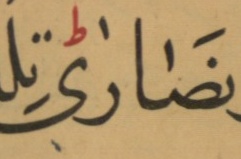 نَصَارٰىؕ تِلْ